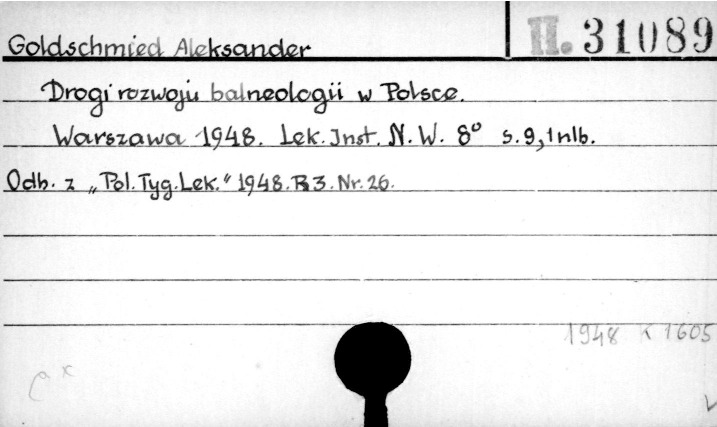 Goldschmied Aleksander
II. 31089
Drogi rozwoju balneologii w Polsce.
Warszawa 1948. Lek. Inst. N. W. 8° s. 9, 1 nlb.
Odb. z „Pol. Tyg. Lek." 1948. R 3. Nr. 26.
1948 K 1605